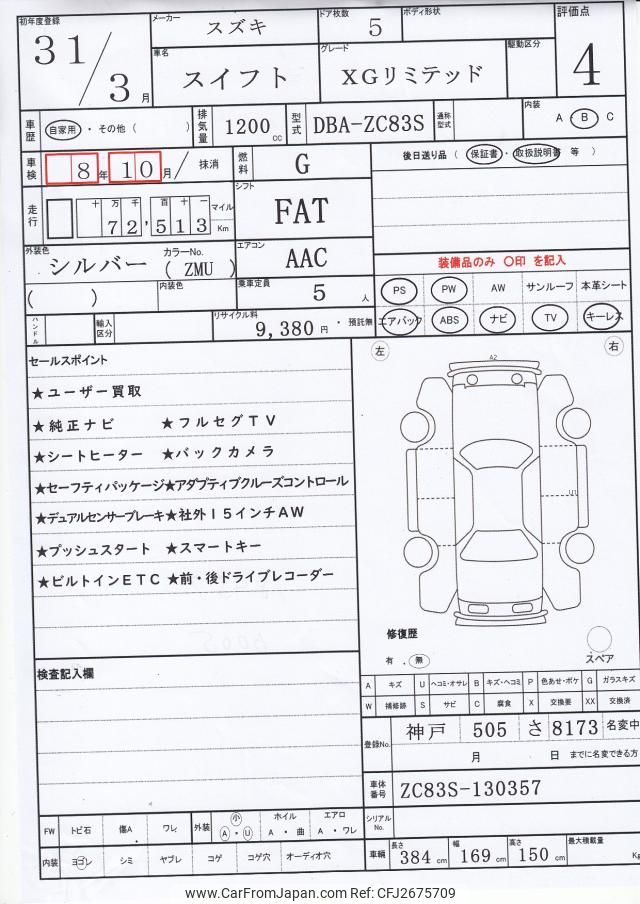 初年度登録 31/3月 メーカー スズキ ドア枚数 5 ボディ形状 評価点 4
車名 スイフト グレード XGリミテッド 駆動区分
車歴 自家用・その他( ) 排気量 1200cc 型式 DBA-ZC83S 通称型式 内装 A・B C
車検 8年10月/ 抹消 燃料 G 後日送り品(保証書・取扱説明書 等)
走行 十万千百十一 72,513 マイル Km シフト FAT
外装色 シルバー カラーNo.(ZMU) エアコン AAC 装備品のみ 〇印 を記入
( ) 内装色 乗車定員 5人 PS PW AW サンルーフ 本革シート
ハンドル 輸入区分 リサイクル料 9,380円・預託無 エアバック ABS ナビ TV キーレス
セールスポイント 左 右
A2
★ユーザー買取
★純正ナビ ★フルセグTV
★シートヒーター ★バックカメラ
★セーフティパッケージ★アダプティブクルーズコントロール
U1
★デュアルセンサーブレーキ★社外15インチAW
★プッシュスタート ★スマートキー
★ビルトインETC★前・後ドライブレコーダー
修復歴
有・無 スペア
検査記入欄
A キズ U ヘコミ・オサレ B キズ・ヘコミ P 色あせ・ボケ G ガラスキズ
W 補修跡 S サビ C 腐食 X 交換要 XX 交換済
登録No. 神戸 505 さ 8173 名変中
月 日 までに名変できる方
車体番号 ZC83S-130357
シリアルNo.
FW トビ石 傷A ワレ 外装 小 A・U ホイル A・曲 エアロ A・ワレ
内装 ヨゴレ シミ ヤブレ コゲ コゲ穴 オーディオ穴 車輌 長さ 384cm 幅 169cm 高さ 150cm 最大積載量 Kg
www.CarFromJapan.com Ref: CFJ2675709